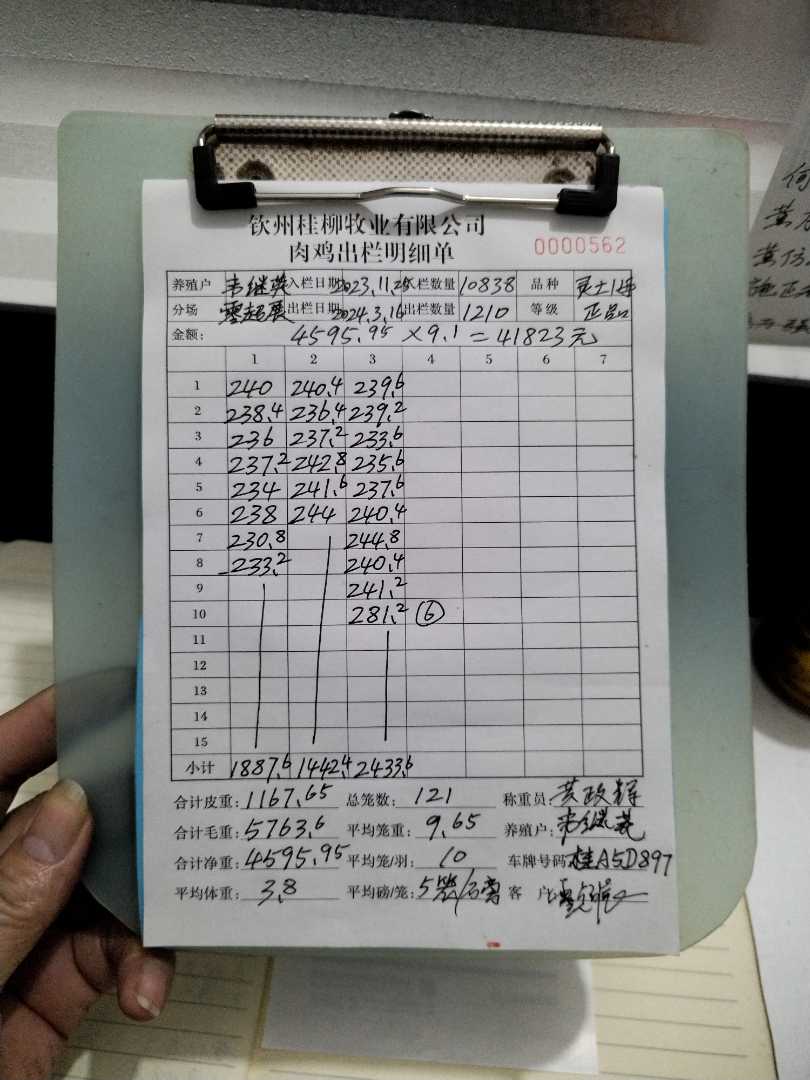 钦州桂柳牧业有限公司
肉鸡出栏明细单 0000562
养殖户 韦继英 入栏日期 2023.11.25 入栏数量 10838 品种 灵土1号
分场 覃超展 出栏日期 2024.3.16 出栏数量 1210 等级 正品
金额: 4595.95 × 9.1 = 41823元
1 2 3 4 5 6 7
1 240 240.4 239.6
2 238.4 236.4 239.2
3 236 237.2 233.6
4 237.2 242.8 235.6
5 234 241.6 237.6
6 238 244 240.4
7 230.8 244.8
8 233.2 240.4
9 241.2
10 281.2 ⑥
11
12
13
14
15
小计 1887.6 1442.4 2433.6
合计皮重: 1167.65 总笼数: 121 称重员: 黄政辉
合计毛重: 5763.6 平均笼重: 9.65 养殖户: 韦继英
合计净重: 4595.95 平均笼/羽: 10 车牌号码: 桂A5D897
平均体重: 3.8 平均磅/笼: 5 客户: